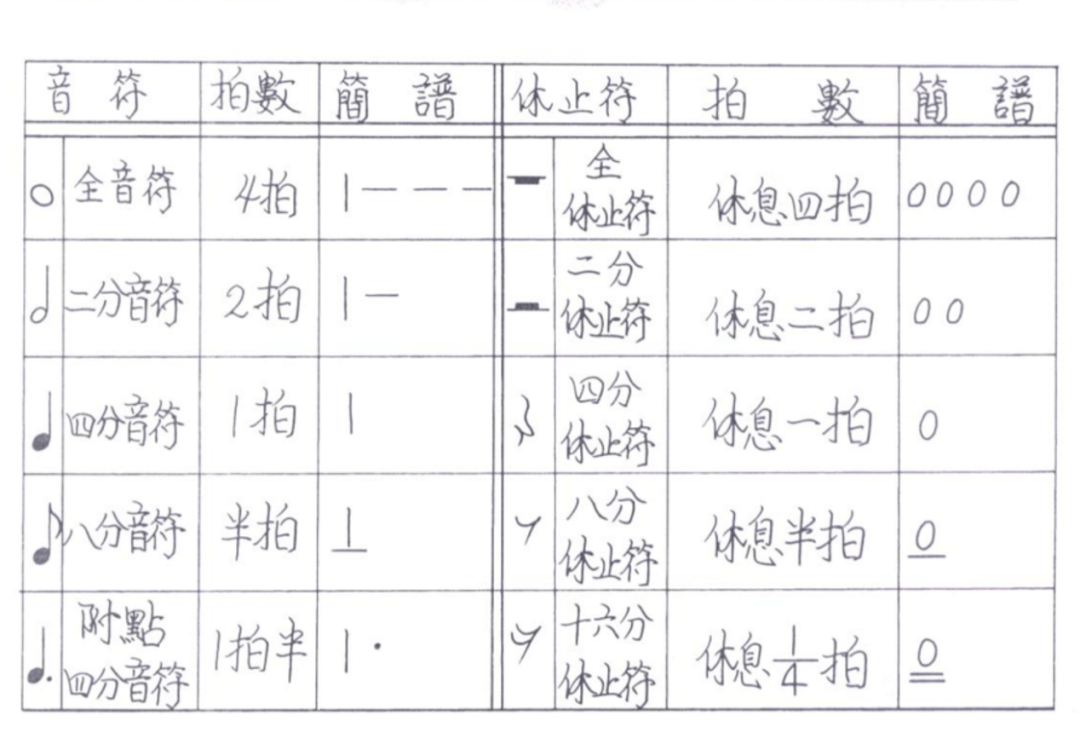 音符 拍數 簡譜 休止符 拍數 簡譜
全音符 4拍 1 — — — 全 休止符 休息四拍 0000
二分音符 2拍 1 — 二分 休止符 休息二拍 00
四分音符 1拍 1 四分 休止符 休息一拍 0
八分音符 半拍 1 八分 休止符 休息半拍 0
附點 四分音符 1拍半 1· 十六分 休止符 休息1/4拍 0